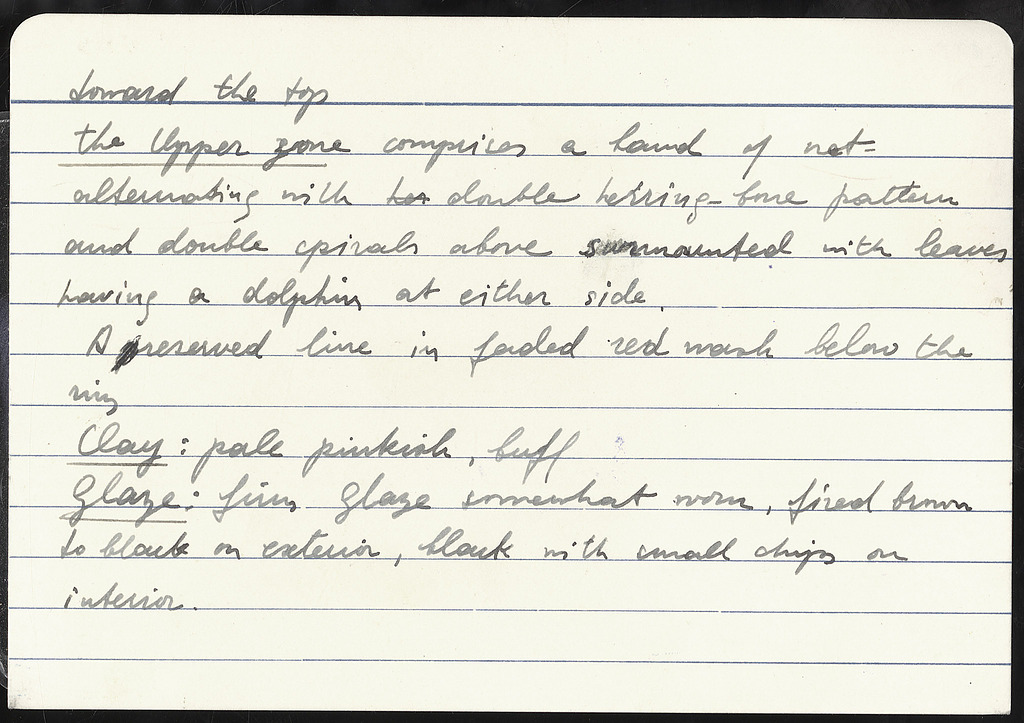 toward the top
the Upper zone comprises a band of net-
alternating with her double herring-bone pattern
and double spirals above surmounted with leaves
having a dolphin at either side.
A preserved line in faded red wash below the
rim
Clay: pale pinkish, buff
Glaze: firm glaze somewhat worn, fired brown
to black on exterior, black with small chips on
interior.